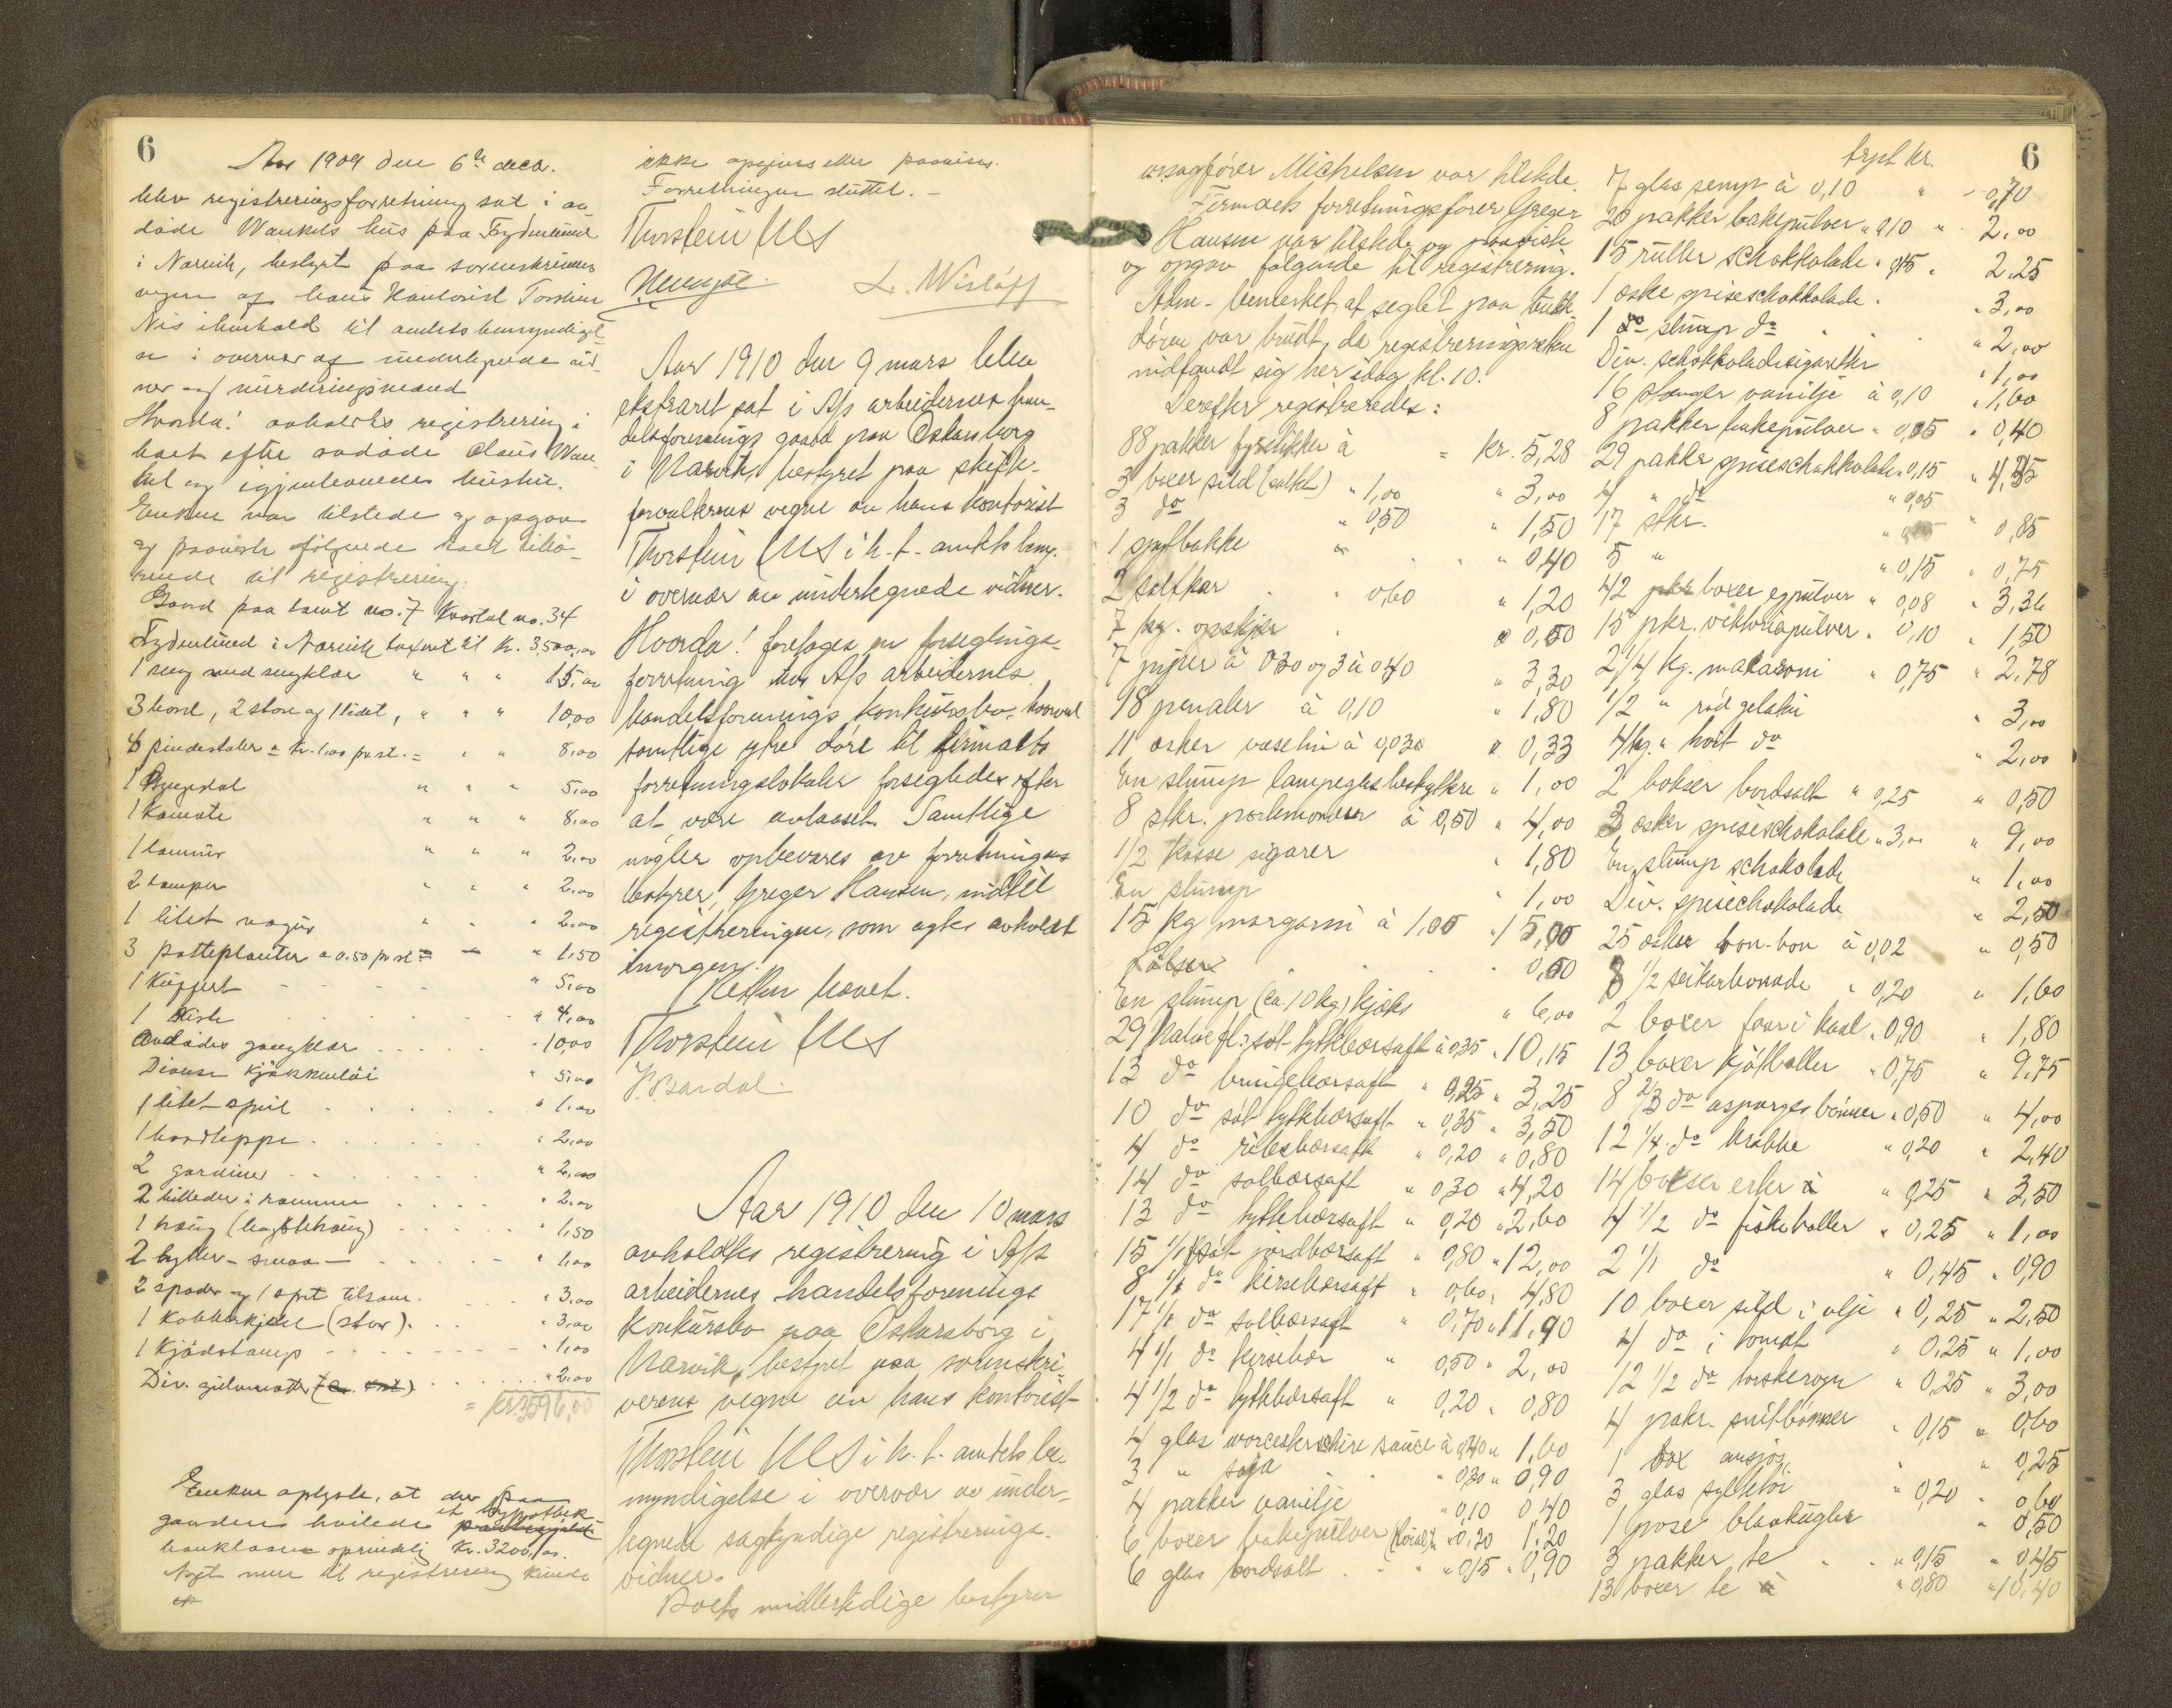 6
Aar 1909 den 6te decbr.
blev registreringsforretning sat i av
døde Wankels hus paa Frydenlund
i Narvik, bestyrt paa sorenskrivers
vegne af hans Kontorist Torstein
Nis i henhold til amtets bemyndigel
se i overvær af undertegnede vid
ner og vurderingsmænd
Hvorda! avholdtes registrering i
boet efter avdøde Claus Wan
kel og igjenlevende hustru.
Enken var tilstede og opgav
og paaviste følgende boet tilhø
rende til registrering:
Gaard paa tomt no. 7 Kvartal no. 34
Frydenlund i Narvik taxeret til Kr. 3,500,00
1 seng med sengklær " " " 15,00
3 bord, 2 store og 1 lidet, " " " 10,00
8 pindestoler a Kr. 1,00 pr. st. = " " 8,00
1 " " " 5,00
1 Komode " " " 8,00
1 " " " 2,00
2 lamper " " " 2,00
1 litet " " " 2,00
3 potteplanter a 0.50 pr st = " 1,50
1 Kuffert " 5,00
1 Kiste " 4,00
Avdødes gangklær 10,00
Diverse Kjøkkentøi " 5,00
1 litet speil " 1,00
1 bordteppe " 2,00
2 gardiner " 2,00
2 billeder i ramme " 2,00
1 haug (bagstehaug) " 1,50
2 lygter - smaa - " 1,00
2 spader og 1 spet tilsam. " 3,00
1 Kobberkjedel (stor) " 3,00
1 Kjødstamp " 1,00
Div. gulvmatter " 2,00
= kr. 3596,00
Enken oplyste, at der paa
gaarden hvilede et hypothek
banklaan oprindelig Kr. 3200,00.
Noget mere til registrering kunde
ikke opgives eller paavises.
Forretningen sluttet. –
Thorstein Nis
L. Wisløff
Aar 1910 den 9 mars blev
ekstraret sat i A/s arbeidernes han-
delsforenings gaard paa Oskarsborg
i Narvik, bestyret paa skift-
forvalterens vegne av hans kontorist
Thorstein Nis i h. t. amtets bem.
i overvær av undertegnede vidner.
Hvorda! foretages en forseglings-
forretning hos A/s arbeidernes
handelsforenings konkursbo, hvorved
samtlige ytre døre til firmaets
forretningslokaler forsegledes efter
at være avlaaset. Samtlige
nøgler opbevares av forretningens
bestyrer, Greger Hansen, indtil
registreringen, som agtes avholdt
imorgen.
Retten hævet.
Thorstein Nis
P. Bardal.
Aar 1910 den 10 mars
avholdtes registrering i A/s
arbeidernes handelsforenings
konkursbo paa Oskarsborg i
Narvik, bestyret paa sorenskri
verens vegne av hans kontorist
Thorstein Nis i h. t. amtets be-
myndigelse i overvær av under-
tegnede sagkyndige registrerings-
vidner.
Boets midlertidige bestyrer
6
ovrsagfører Michelsen var tilstede.
Firmaets forretningsfører Greger
Hansen var tilstede og paaviste
og opgav følgende til registrering.
Anm. bemerket, at seglet paa butik
døren var brudt, da registreringsretten
indfandt sig her idag kl. 10.
Derefter registreredes:
88 pakker fyrstikker à = kr. 5,28
3 boxer sild (saltet) " 1,00 " 3,00
3 do " 0,50 " 1,50
1 spytbakke " 0,40
2 saltkar " 0,60 " 1,20
7 " 0,50
7 piper à 0,30 og 3 à 0,40 " 3,30
18 penaler à 0,10 " 1,80
11 æsker vaselin à 0,030 " 0,33
En slump lampeglasbeskyttere " 1,00
8 stkr. portemonæer à 0,50 " 4,00
1/2 kasse sigarer " 1,80
En slump " 1,00
15 kg margarin à 1,00 " 15,00
Pølser " 0,50
En slump (ca. 10 kg) kjeks " 6,00
29 halve fl. søt tyttebærsaft à 0,35 " 10,15
13 do bringebærsaft " 0,25 " 3,25
10 do søt tyttebærsaft " 0,35 " 3,50
4 do ribsbærsaft " 0,20 " 0,80
14 do solbærsaft " 0,30 " 4,20
13 do tyttebærsaft " 0,20 " 2,60
15 1/1 søt jordbærsaft " 0,80 " 12,00
8 1/1 do kirsebærsaft " 0,60 " 4,80
17 1/1 do solbærsaft " 0,70 " 11,90
4 1/1 do kirsebær " 0,50 " 2,00
4 1/2 do tyttebærsaft " 0,20 " 0,80
4 glas worcestershire sauce à 0,40 " 1,60
3 " soja " 0,30 " 0,90
4 pakker vanilje " 0,10 0,40
6 boxer bakepulver " 0,20 1,20
6 glas bordsalt " 0,15 " 0,90
trpt kr.
7 glas senep à 0,10 " 0,70
20 pakker bakepulver " 0,10 " 2,00
15 ruller schokkolade " 0,15 " 2.25
1 æske spiseschokkolade " 3,00
1 do slump do " 2,00
Div. schokkoladesigaretter " 1,00
16 stænger vanilje à 0,10 " 1,60
8 pakker bakepulver " 0,05 " 0,40
29 pakker spiseschokkolade " 0,15 " 4,35
4 " do " 0,05
17 stkr. " 0,85
5 " " 0,15 " 0,75
42 boxer egpulver " 0,08 " 3,36
15 pkr. viktoriapulver " 0,10 " 1,50
2 1/4 kg. makaroni " 0,75 " 2,78
1/2 " rød gelatin " 3,00
4 kg. " hvit do " 2,00
2 bokser bordsalt " 0,25 " 0,50
3 æsker spiseschokolade " 3,00 " 9,00
En slump schokolade " 1,00
Div. spisechokolade " 2,50
25 æsker bon-bon à 0,02 " 0,50
8 1/2 seikarbonade " 0,20 " 1,60
2 boxer faar i kaal " 0,90 " 1,80
13 boxer kjøtboller " 0,75 " 9,75
8 2/3 do asparges bønner " 0,50 " 4,00
12 1/4 do krabbe " 0,20 " 2,40
14 bokser erter à " 0,25 " 3,50
4 1/2 do fiskeboller " 0,25 " 1,00
2 1/1 do " 0,45 " 0,90
10 boxer sild i olje " 0,25 " 2,50
4 do i tomat " 0,25 " 1,00
12 1/2 do torskerogn " 0,25 " 3,00
4 pakr. snitbønner " 0,15 " 0,60
1 box ansjos " 0,25
3 glas syltetøi " 0,20 " 0,60
1 pose blaakugler " 0,50
3 pakker te " 0,15 " 0,45
13 boxer te à " 0,80 " 10,40